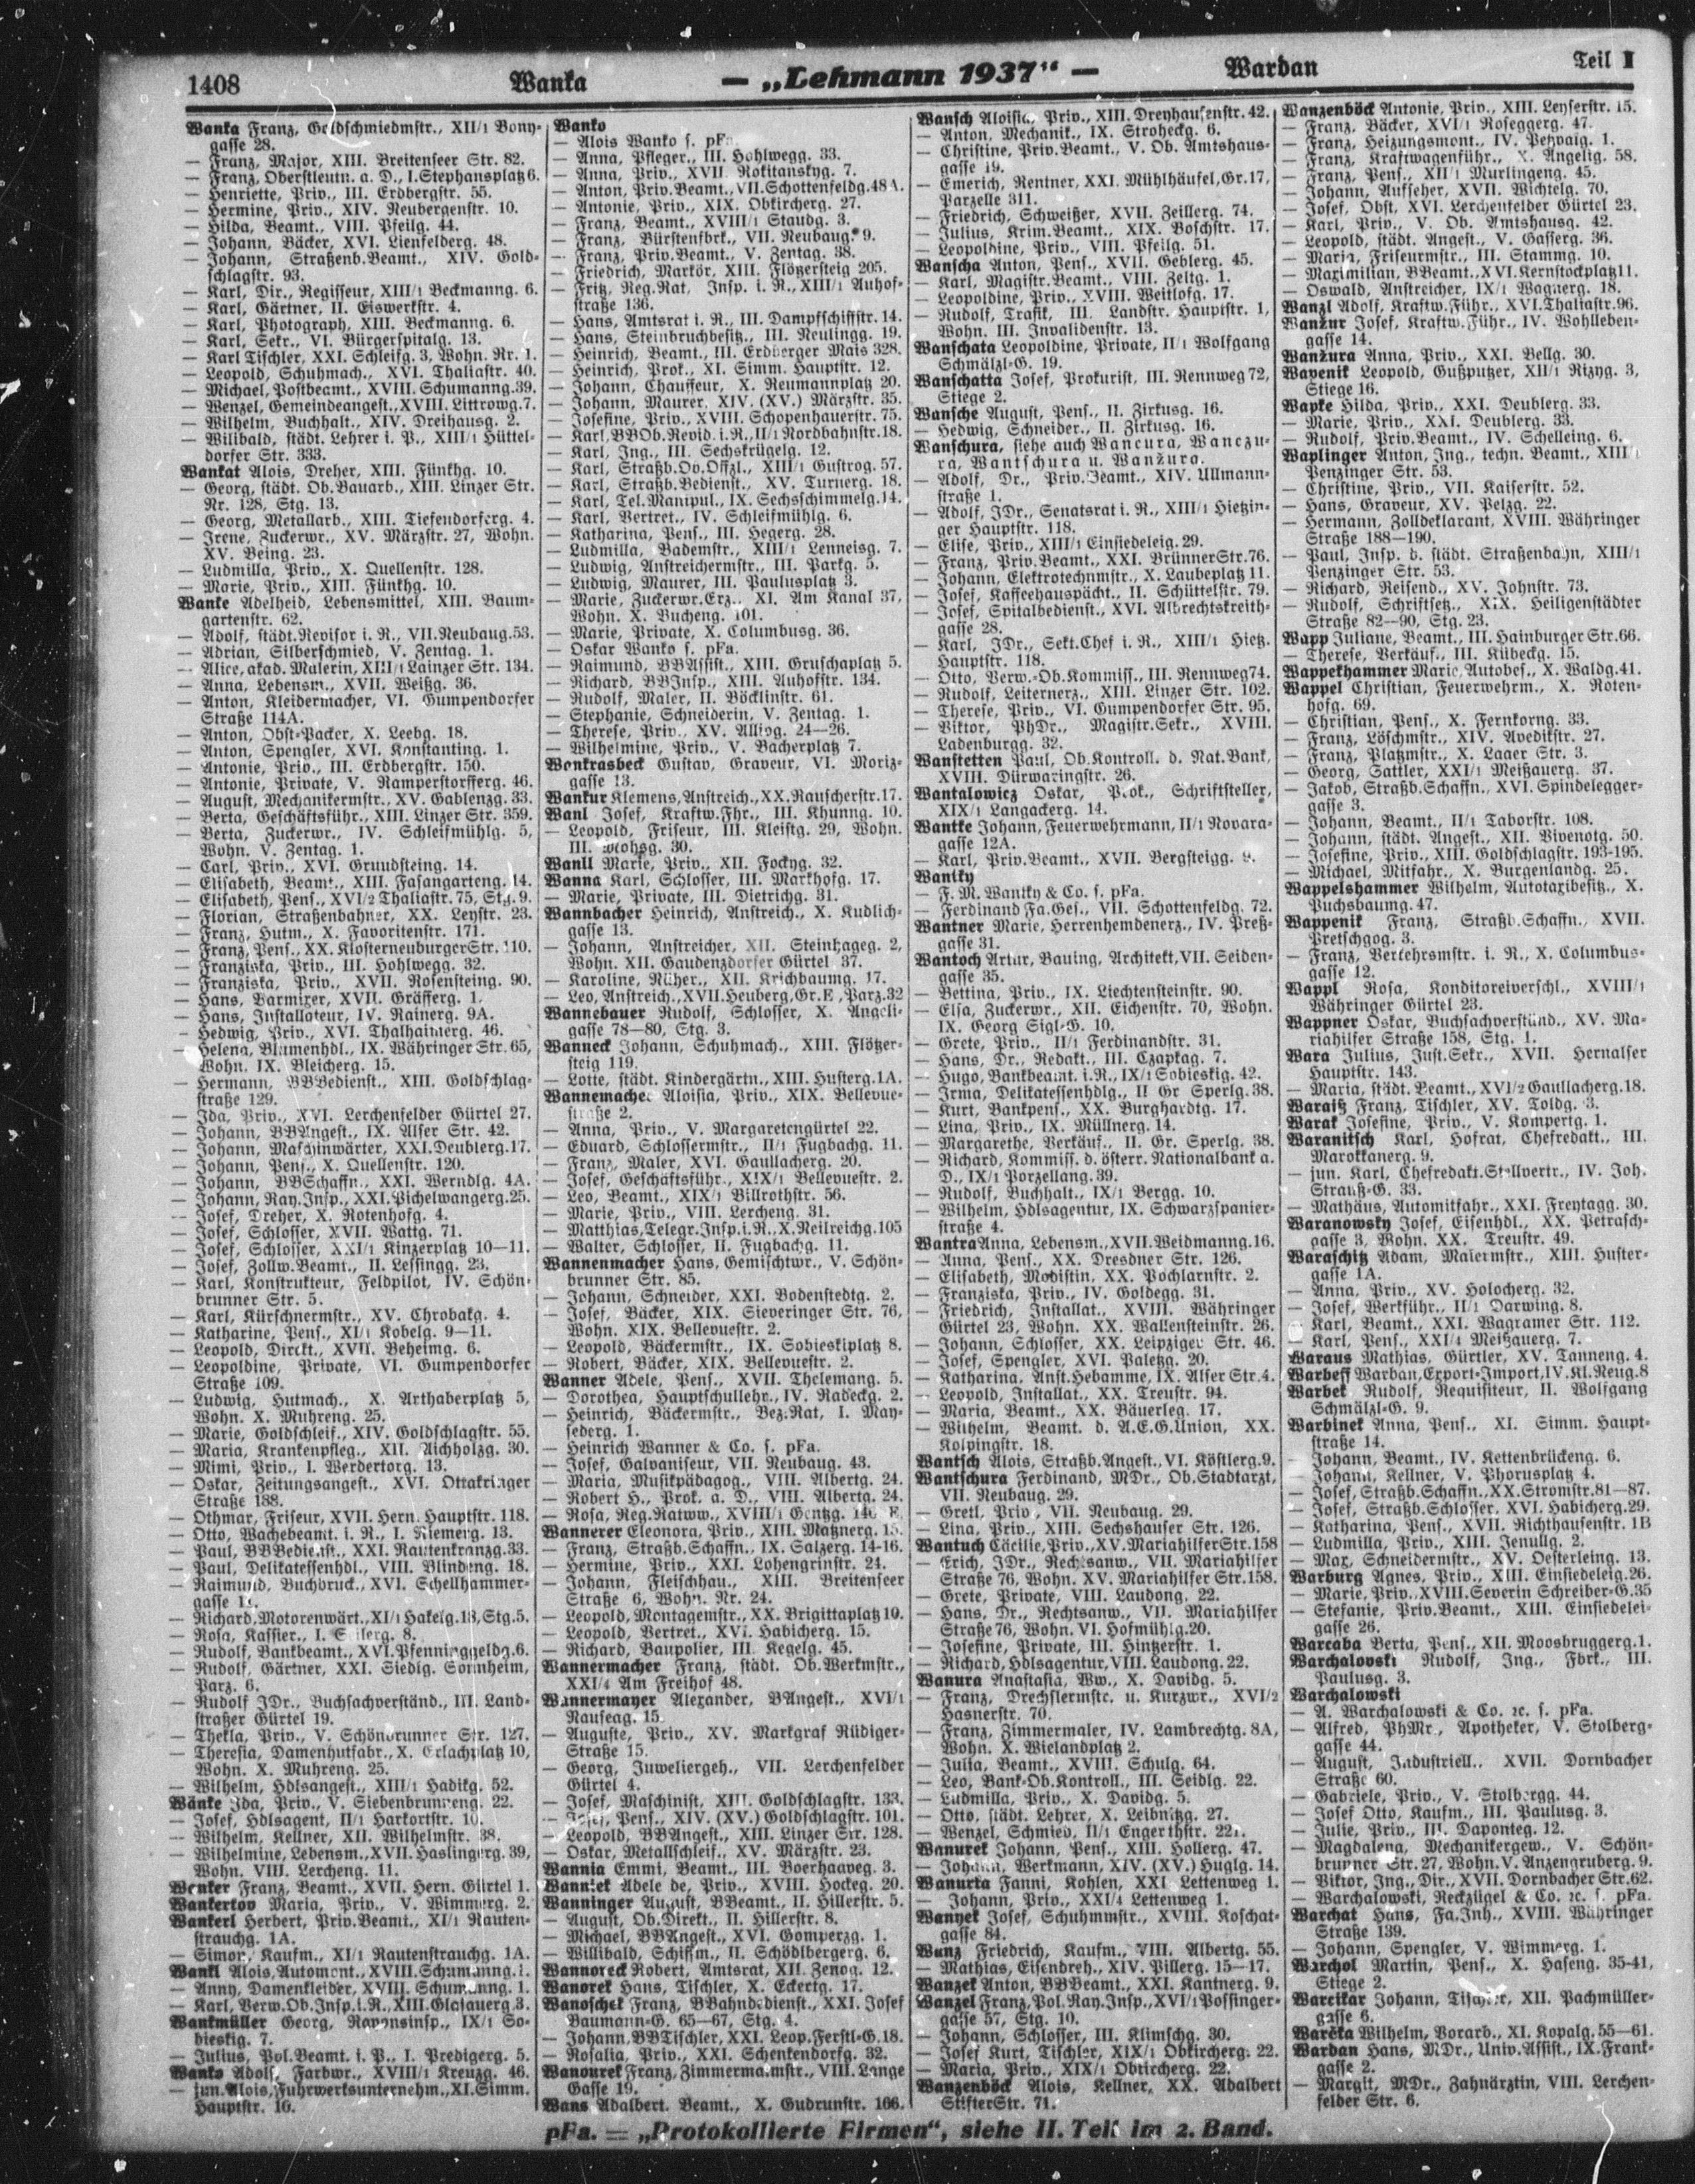 1408
Wanka
— „Lehmann 1937“ —
Wardan
Teil I
Wanka Franz, Goldschmiedmstr., XII/1 Bony-
gasse 28.
— Franz, Major, XIII. Breitenseer Str. 82.
— Franz, Oberstleutn. a. D., I. Stephansplatz 6.
— Henriette, Priv., III. Erdbergstr. 55.
— Hermine, Priv., XIV. Neubergenstr. 10.
— Hilda, Beamt., VIII. Pfeilg. 44.
— Johann, Bäcker, XVI. Lienfelderg. 48.
— Johann, Straßenb.Beamt., XIV. Gold-
schlagstr. 93.
— Karl, Dir., Regisseur, XIII/1 Beckmanng. 6.
— Karl, Gärtner, II. Eiswerkstr. 4.
— Karl, Photograph, XIII. Beckmanng. 6.
— Karl, Sekr., VI. Bürgerspitalg. 13.
— Karl Tischler, XXI. Schleifg. 3, Wohn. Nr. 1.
— Leopold, Schuhmach., XVI. Thaliastr. 40.
— Michael, Postbeamt., XVIII. Schumanng. 39.
— Wenzel, Gemeindeangest., XVIII. Littrowg. 7.
— Wilhelm, Buchhalt., XIV. Dreihausg. 2.
— Wilibald, städt. Lehrer i. P., XIII/1 Hüttel-
dorfer Str. 333.
Wankat Alois, Dreher, XIII. Fünkhg. 10.
— Georg, städt. Ob.Bauarb., XIII. Linzer Str.
Nr. 128, Stg. 13.
— Georg, Metallarb., XIII. Tiefendorferg. 4.
— Irene, Zuckerwr., XV. Märzstr. 27, Wohn.
XV. Being. 23.
— Ludmilla, Priv., X. Quellenstr. 128.
— Marie, Priv., XIII. Fünkhg. 10.
Wanke Adelheid, Lebensmittel, XIII. Baum-
gartenstr. 62.
— Adolf, städt.Revisor i. R., VII. Neubaug. 53.
— Adrian, Silberschmied, V. Zentag. 1.
— Alice, akad. Malerin, XIII/1 Lainzer Str. 134.
— Anna, Lebensm., XVII. Weißg. 36.
— Anton, Kleidermacher, VI. Gumpendorfer
Straße 114A.
— Anton, Obst-Packer, X. Leebg. 18.
— Anton, Spengler, XVI. Konstanting. 1.
— Antonie, Priv., III. Erdbergstr. 150.
— Antonie, Private, V. Ramperstorfferg. 46.
— August, Mechanikermstr., XV. Gablenzg. 33.
— Berta, Geschäftsführ., XIII. Linzer Str. 359.
— Berta, Zuckerwr., IV. Schleifmühlg. 5,
Wohn. V. Zentag. 1.
— Carl, Priv., XVI. Grundsteing. 14.
— Elisabeth, Beamt., XIII. Fasangarteng. 14.
— Elisabeth, Pens., XVI/2 Thaliastr. 75, Stg. 9.
— Florian, Straßenbahner, XX. Leystr. 23.
— Franz, Hutm., X. Favoritenstr. 171.
— Franz, Pens., XX. Klosterneuburger Str. 110.
— Franziska, Priv., III. Hohlwegg. 32.
— Franziska, Priv., XVII. Rosensteing. 90.
— Hans, Barmixer, XVII. Gräfferg. 1.
— Hans, Installateur, IV. Rainerg. 9A.
— Hedwig, Priv., XVI. Thalhaimerg. 46.
— Helena, Blumenhdl., IX. Währinger Str. 65,
Wohn. IX. Bleicherg. 15.
— Hermann, BBBedienst., XIII. Goldschlag-
straße 129.
— Ida, Priv., XVI. Lerchenfelder Gürtel 27.
— Johann, BBAngest., IX. Alser Str. 42.
— Johann, Maschinwärter, XXI. Deublerg. 17.
— Johann, Pens., X. Quellenstr. 120.
— Johann, BBSchaffn., XXI. Werndlg. 4A.
— Johann, Ray.Insp., XXI. Pichelwangerg. 25.
— Josef, Dreher, X. Rotenhofg. 4.
— Josef, Schlosser, XVII. Wattg. 71.
— Josef, Schlosser, XXI/1 Kinzerplatz 10—11.
— Josef, Zollw.Beamt., II. Lessingg. 23.
— Karl, Konstrukteur, Feldpilot, IV. Schön-
brunner Str. 5.
— Karl, Kürschnermstr., XV. Chrobakg. 4.
— Katharine, Pens., XI/1 Kobelg. 9—11.
— Leopold, Direkt., XVII. Beheimg. 6.
— Leopoldine, Private, VI. Gumpendorfer
Straße 109.
— Ludwig, Hutmach., X. Arthaberplatz 5,
Wohn. X. Muhreng. 25.
— Marie, Goldschleif., XIV. Goldschlagstr. 55.
— Maria, Krankenpfleg., XII. Aichholzg. 30.
— Mimi, Priv., I. Werdertorg. 13.
— Oskar, Zeitungsangest., XVI. Ottakringer
Straße 188.
— Othmar, Friseur, XVII. Hern. Hauptstr. 118.
— Otto, Wachebeamt. i. R., I. Riemerg. 13.
— Paul, BBBedienst., XXI. Rautenkranzg. 33.
— Paul, Delikatessenhdl., VIII. Blindeng. 18.
— Raimund, Buchdruck., XVI. Schellhammer-
gasse
— Richard, Motorenwärt., XI/1 Hakelg. 18, Stg. 5.
— Rosa, Kassier., I. Seilerg. 8.
— Rudolf, Bankbeamt., XVI. Pfenninggeldg. 6.
— Rudolf, Gärtner, XXI. Siedlg. Sonnheim,
Parz. 6.
— Rudolf JDr., Buchsachverständ., III. Land-
straßer Gürtel 19.
— Thekla, Priv., V. Schönbrunner Str. 127.
— Theresia, Damenhutfabr., X. Erlachplatz 10,
Wohn. X. Muhreng. 25.
— Wilhelm, Hdlsangest., XIII/1 Hadikg. 52.
Wänke Ida, Priv., V. Siebenbrunneng. 22.
— Josef, Hdlsagent, II/1 Harkortstr. 10.
— Wilhelm, Kellner, XII. Wilhelmstr. 38.
— Wilhelmine, Lebensm., XVII. Haslingerg. 39,
Wohn. VIII. Lercheng. 11.
Wenker Franz, Beamt., XVII. Hern. Gürtel 1.
Wankertov Maria, Priv., V. Wimmerg. 2.
Wankerl Herbert, Priv.Beamt., XI/1 Rauten-
strauchg. 1A.
— Simon, Kaufm., XI/1 Rautenstrauchg. 1A.
Wankl Alois, Automont., XVIII. Schumanng. 1.
— Anny, Damenkleider, XVIII. Schumanng. 1.
— Karl, Verw.Ob.Insp.i.R., XIII. Glasauerg. 3.
Wankmüller Georg, Rayonsinsp., IX/1 So-
bieskig. 7.
— Julius, Pol.Beamt. i. P., I. Predigerg. 5.
Wanko Adolf, Farbwr., XVIII/1 Kreuzg. 46.
— jun. Alois, Fuhrwerksunternehm., XI. Simm.
Hauptstr. 10.
Wanko
— Alois Wanko s. pFa.
— Anna, Pfleger., III. Hohlwegg. 33.
— Anna, Priv., XVII. Rokitanskyg. 7.
— Anton, Priv.Beamt., VII. Schottenfeldg. 48A.
— Antonie, Priv., XIX. Obkircherg. 27.
— Franz, Beamt., XVIII/1 Staudg. 3.
— Franz, Bürstenfbrk., VII. Neubaug. 9.
— Franz, Priv.Beamt., V. Zentag. 38.
— Friedrich, Markör, XIII. Flötzersteig 205.
— Fritz, Reg.Rat, Insp. i. R., XIII/1 Auhof-
straße 136.
— Hans, Amtsrat i. R., III. Dampfschiffstr. 14.
— Hans, Steinbruchbesitz., III. Neulingg. 19.
— Heinrich, Beamt., III. Erdberger Mais 328.
— Heinrich, Prok., XI. Simm. Hauptstr. 12.
— Johann, Chauffeur, X. Neumannplatz 20.
— Johann, Maurer, XIV. (XV.) Märzstr. 35.
— Josefine, Priv., XVIII. Schopenhauerstr. 75.
— Karl, BBOb.Revid. i.R., II/1 Nordbahnstr. 18.
— Karl, Ing., III. Sechskrügelg. 12.
— Karl, Straßb.Ob.Offzl., XIII/1 Gustrog. 57.
— Karl, Straßb.Bedienst., XV. Turnerg. 18.
— Karl, Tel.Manipul., IX. Sechsschimmelg. 14.
— Karl, Vertret., IV. Schleifmühlg. 6.
— Katharina, Pens., III. Hegerg. 28.
— Ludmilla, Bademstr., XIII/1 Lenneisg. 7.
— Ludwig, Anstreichermstr., III. Parkg. 5.
— Ludwig, Maurer, III. Paulusplatz 3.
— Marie, Zuckerwr.Erz., XI. Am Kanal 37,
Wohn. X. Bucheng. 101.
— Marie, Private, X. Columbusg. 36.
— Oskar Wanko s. pFa.
— Raimund, BBAssist., XIII. Gruschaplatz 5.
— Richard, BBInsp., XIII. Auhofstr. 134.
— Rudolf, Maler, II. Böcklinstr. 61.
— Stephanie, Schneiderin, V. Zentag. 1.
— Therese, Priv., XV. Alliog. 24—26.
— Wilhelmine, Priv., V. Bacherplatz 7.
Wankrasbeck Gustav, Graveur, VI. Moriz-
gasse 13.
Wankur Klemens, Anstreich., XX. Rauscherstr. 17.
Wanl Josef, Kraftw.Fhr., III. Khunng. 10.
— Leopold, Friseur, III. Kleistg. 29, Wohn.
III. Mohsg. 30.
Wanll Marie, Priv., XII. Fockyg. 32.
Wanna Karl, Schlosser, III. Markhofg. 17.
— Marie, Private, III. Dietrichg. 31.
Wannbacher Heinrich, Anstreich., X. Kudlich-
gasse 13.
— Johann, Anstreicher, XII. Steinhageg. 2,
Wohn. XII. Gaudenzdorfer Gürtel 37.
— Karoline, Näher., XII. Krichbaumg. 17.
— Leo, Anstreich., XVII. Heuberg, Gr. E, Parz. 32
Wannebauer Rudolf, Schlosser, X. Angeli-
gasse 78—80, Stg. 3.
Wanneck Johann, Schuhmach., XIII. Flötzer-
steig 119.
— Lotte, städt. Kindergärtn., XIII. Husterg. 1A.
Wannemacher Aloisia, Priv., XIX. Bellevue-
straße 2.
— Anna, Priv., V. Margaretengürtel 22.
— Eduard, Schlossermstr., II/1 Fugbachg. 11.
— Franz, Maler, XVI. Gaullacherg. 20.
— Josef, Geschäftsführ., XIX/1 Bellevuestr. 2.
— Leo, Beamt., XIX/1 Billrothstr. 56.
— Marie, Priv., VIII. Lercheng. 31.
— Matthias, Telegr.Insp.i.R., X. Neilreichg. 105
— Walter, Schlosser, II. Fugbachg. 11.
Wannenmacher Hans, Gemischtwr., V. Schön-
brunner Str. 85.
— Johann, Schneider, XXI. Bodenstedtg. 2.
— Josef, Bäcker, XIX. Sieveringer Str. 76,
Wohn. XIX. Bellevuestr. 2.
— Leopold, Bäckermstr., IX. Sobieskiplatz 8.
— Robert, Bäcker, XIX. Bellevuestr. 2.
Wanner Adele, Pens., XVII. Thelemang. 5.
— Dorothea, Hauptschullehr., IV. Radeckg. 2.
— Heinrich, Bäckermstr., Bez.Rat, I. May-
sederg. 1.
— Heinrich Wanner & Co. s. pFa.
— Josef, Galvaniseur, VII. Neubaug. 43.
— Maria, Musikpädagog., VIII. Albertg. 24.
— Robert H., Prok. a. D., VIII. Albertg. 24.
— Rosa, Reg.Ratww., XVIII/1 Gentzg. 140 E.
Wannerer Eleonora, Priv., XIII. Matznerg. 15.
— Franz, Straßb.Schaffn., IX. Salzerg. 14-16.
— Hermine, Priv., XXI. Lohengrinstr. 24.
— Johann, Fleischhau., XIII. Breitenseer
Straße 6, Wohn. Nr. 24.
— Leopold, Montagemstr., XX. Brigittaplatz 10.
— Leopold, Vertret., XVI. Habicherg. 15.
— Richard, Baupolier, III. Kegelg. 45.
Wannermacher Franz, städt. Ob.Werkmstr.,
XXI/4 Am Freihof 48.
Wannermayer Alexander, BAngest., XVI/1
Nauseag. 15.
— Auguste, Priv., XV. Markgraf Rüdiger-
Straße 15.
— Georg, Juweliergeh., VII. Lerchenfelder
Gürtel 4.
— Josef, Maschinist, XIII. Goldschlagstr. 133.
— Josef, Pens., XIV. (XV.) Goldschlagstr. 101.
— Leopold, BBAngest., XIII. Linzer Str. 128.
— Oskar, Metallschleif., XV. Märzstr. 23.
Wannia Emmi, Beamt., III. Boerhaaveg. 3.
Wanniek Adele de, Priv., XVIII. Hockeg. 20.
Wanninger August, BBeamt., II. Hillerstr. 5.
— August, Ob.Direkt., II. Hillerstr. 8.
— Michael, BBAngest., XVI. Gomperzg. 1.
— Willibald, Schiffm., II. Schödlbergerg. 6.
Wannoreck Robert, Amtsrat, XII. Zenog. 12.
Wanorek Hans, Tischler, X. Eckertg. 17.
Wanoschek Franz, BBahnbedienst., XXI. Josef
Baumann-G. 65—67, Stg. 4.
— Johann, BBTischler, XXI. Leop. Ferstl-G. 18.
— Rosalia, Priv., XXI. Schenkendorfg. 32.
Wanourek Franz, Zimmermamstr., VIII. Lange
Gasse 19.
Wans Adalbert. Beamt., X. Gudrunstr. 166.
Wansch Aloisia, Priv., XIII. Dreyhausenstr. 42.
— Anton, Mechanik., IX. Stroheckg. 6.
— Christine, Priv.Beamt., V. Ob. Amtshaus-
gasse 19.
— Emerich, Rentner, XXI. Mühlhäufel, Gr. 17,
Parzelle 311.
— Friedrich, Schweißer, XVII. Zeillerg. 74.
— Julius, Krim.Beamt., XIX. Boschstr. 17.
— Leopoldine, Priv., VIII. Pfeilg. 51.
Wanscha Anton, Pens., XVII. Geblerg. 45.
— Karl, Magistr.Beamt., VIII. Zeltg. 1.
— Leopoldine, Priv., XVIII. Weitlofg. 17.
— Rudolf, Trafik, III. Landstr. Hauptstr. 1,
Wohn. III. Invalidenstr. 13.
Wanschata Leopoldine, Private, II/1 Wolfgang
Schmälzl-G. 19.
Wanschatta Josef, Prokurist, III. Rennweg 72,
Stiege 2.
Wansche August, Pens., II. Zirkusg. 16.
— Hedwig, Schneider., II. Zirkusg. 16.
Wanschura, siehe auch Wancura, Wanczu-
ra, Wantschura u. Wanžura.
— Adolf, Dr., Priv.Beamt., XIV. Ullmann-
straße 1.
— Adolf, JDr., Senatsrat i. R., XIII/1 Hietzin-
ger Hauptstr. 118.
— Elise, Priv., XIII/1 Einsiedeleig. 29.
— Franz, Priv.Beamt., XXI. Brünner Str. 76.
— Johann, Elektrotechnmstr., X. Laubeplatz 11.
— Josef, Kaffeehauspächt., II. Schüttelstr. 79.
— Josef, Spitalbedienst., XVI. Albrechtskreith-
gasse 28.
— Karl, JDr., Sekt.Chef i. R., XIII/1 Hietz.
Hauptstr. 118.
— Otto, Verw.-Ob.Kommiss., III. Rennweg 74.
— Rudolf, Leiternerz., XIII. Linzer Str. 102.
— Therese, Priv., VI. Gumpendorfer Str. 95.
— Viktor, PhDr., Magistr.Sekr., XVIII.
Ladenburgg. 32.
Wanstetten Paul, Ob.Kontroll. d. Nat.Bank,
XVIII. Dürwaringstr. 26.
Wantalowicz Oskar, Prok., Schriftsteller,
XIX/1 Langackerg. 14.
Wantke Johann, Feuerwehrmann, II/1 Novara-
gasse 12A.
— Karl, Priv.Beamt., XVII. Bergsteigg. 9.
Wantky
— F. M. Wantky & Co. s. pFa.
— Ferdinand Fa.Ges., VII. Schottenfeldg. 72.
Wantner Marie, Herrenhemdenerz., IV. Preß-
gasse 31.
Wantoch Artur, Bauing, Architekt, VII. Seiden-
gasse 35.
— Bettina, Priv., IX. Liechtensteinstr. 90.
— Elsa, Zuckerwr., XII. Eichenstr. 70, Wohn.
IX. Georg Sigl-G. 10.
— Grete, Priv., II/1 Ferdinandstr. 31.
— Hans, Dr., Redakt., III. Czapkag. 7.
— Hugo, Bankbeamt. i.R., IX/1 Sobieskig. 42.
— Irma, Delikatessenhdlg., II Gr Sperlg. 38.
— Kurt, Bankpens., XX. Burghardtg. 17.
— Lina, Priv., IX. Müllnerg. 14.
— Margarethe, Verkäuf., II. Gr. Sperlg. 38.
— Richard, Kommiss. d. österr. Nationalbank a.
D., IX/1 Porzellang. 39.
— Rudolf, Buchhalt., IX/1 Bergg. 10.
— Wilhelm, Hdlsagentur, IX. Schwarzspanier-
straße 4.
Wantra Anna, Lebensm., XVII. Weidmanng. 16.
— Anna, Pens., XX. Dresdner Str. 126.
— Elisabeth, Modistin, XX. Pöchlarnstr. 2.
— Franziska, Priv., IV. Goldegg. 31.
— Friedrich, Installat., XVIII. Währinger
Gürtel 23, Wohn. XX. Wallensteinstr. 26.
— Johann, Schlosser, XX. Leipziger Str. 46.
— Josef, Spengler, XVI. Paletzg. 20.
— Katharina, Anst.Hebamme, IX. Alser Str. 4.
— Leopold, Installat., XX. Treustr. 94.
— Maria, Beamt., XX. Bäuerleg. 17.
— Wilhelm, Beamt. d. A.E.G.Union, XX.
Kolpingstr. 18.
Wantsch Alois, Straßb.Angest., VI. Köstlerg. 9.
Wantschura Ferdinand, MDr., Ob.Stadtarzt,
VII. Neubaug. 29.
— Gretl, Priv., VII. Neubaug. 29.
— Lina, Priv., XIII. Sechshauser Str. 126.
Wantuch Cäcilie, Priv., XV. Mariahilfer Str. 158
— Erich, JDr., Rechtsanw., VII. Mariahilfer
Straße 76, Wohn. XV. Mariahilfer Str. 158.
— Grete, Private, VIII. Laudong. 22.
— Hans, Dr., Rechtsanw., VII. Mariahilfer
Straße 76, Wohn. VI. Hofmühlg. 20.
— Josefine, Private, III. Hintzerstr. 1.
— Richard, Hdlsagentur, VIII. Laudong. 22.
Wanura Anastasia, Ww., X. Davidg. 5.
— Franz, Drechslermstr. u. Kurzwr., XVI/2
Hasnerstr. 70.
— Franz, Zimmermaler, IV. Lambrechtg. 8A,
Wohn. X. Wielandplatz 2.
— Julia, Beamt., XVIII. Schulg. 64.
— Leo, Bank-Ob.Kontroll., III. Seidlg. 22.
— Ludmilla, Priv., X. Davidg. 5.
— Otto, städt. Lehrer, X. Leibnitzg. 27.
— Wenzel, Schmied, II/1 Engerthstr.
Wanurek Johann, Pens., XIII. Hollerg. 47.
— Johann, Werkmann, XIV. (XV.) Huglg. 14.
Wanurta Fanni, Kohlen, XXI Lettenweg 1.
— Johann, Priv., XXI/4 Lettenweg 1.
Wanyek Josef, Schuhmmstr., XVIII. Koschat-
gasse 84.
Wanz Friedrich, Kaufm., VIII. Albertg. 55.
— Mathias, Eisendreh., XIV. Pillerg. 15—17.
Wanzek Anton, BBBeamt., XXI. Kantnerg. 9.
Wanzel Franz, Pol.Ray.Insp., XVI/1 Possinger-
gasse 57, Stg. 10.
— Johann, Schlosser, III. Klimschg. 30.
— Josef Kurt, Tischler, XIX/1 Obkircherg. 22.
— Maria, Priv., XIX/1 Obkircherg. 22.
Wanzenböck Alois, Kellner, XX. Adalbert
StifterStr. 71.
Wanzenböck Antonie, Priv., XIII. Leyserstr. 15.
— Franz, Bäcker, XVI/1 Roseggerg. 47.
— Franz, Heizungsmont., IV. Petzvalg. 1.
— Franz, Kraftwagenführ., X. Angelig. 58.
— Franz, Pens., XII/1 Murlingeng. 45.
— Johann, Aufseher, XVII. Wichtelg. 70.
— Josef, Obst, XVI. Lerchenfelder Gürtel 23.
— Karl, Priv., V. Ob. Amtshausg. 42.
— Leopold, städt. Angest., V. Gasserg. 36.
— Maria, Friseurmstr., III. Stammg. 10.
— Maximilian, BBeamt., XVI. Kernstockplatz 11.
— Oswald, Anstreicher, IX/1 Wagnerg. 18.
Wanzl Adolf, Kraftw.Führ., XVI. Thaliastr. 96.
Wanžur Josef, Kraftw.Führ., IV. Wohlleben-
gasse 14.
Wanžura Anna, Priv., XXI. Bellg. 30.
Wapenik Leopold, Gußputzer, XII/1 Rizyg. 3,
Stiege 16.
Wapke Hilda, Priv., XXI. Deublerg. 33.
— Marie, Priv., XXI. Deublerg. 33.
— Rudolf, Priv.Beamt., IV. Schelleing. 6.
Waplinger Anton, Ing., techn. Beamt., XIII/1
Penzinger Str. 53.
— Christine, Priv., VII. Kaiserstr. 52.
— Hans, Graveur, XV. Pelzg. 22.
— Hermann, Zolldeklarant, XVIII. Währinger
Straße 188—190.
— Paul, Insp. d. städt. Straßenbahn, XIII/1
Penzinger Str. 53.
— Richard, Reisend., XV. Johnstr. 73.
— Rudolf, Schriftsetz., XIX. Heiligenstädter
Straße 82—90, Stg. 23.
Wapp Juliane, Beamt., III. Hainburger Str. 66.
— Therese, Verkäuf., III. Kübeckg. 15.
Wappekhammer Marie, Autobes., X. Waldg. 41.
Wappel Christian, Feuerwehrm., X. Roten-
hofg. 69.
— Christian, Pens., X. Fernkorng. 33.
— Franz, Löschmstr., XIV. Avedikstr. 27.
— Franz, Platzmstr., X. Laaer Str. 3.
— Georg, Sattler, XXI/1 Meißauerg. 37.
— Jakob, Straßb.Schaffn., XVI. Spindelegger-
gasse 3.
— Johann, Beamt., II/1 Taborstr. 108.
— Johann, städt. Angest., XII. Vivenotg. 50.
— Josefine, Priv., XIII. Goldschlagstr. 193-195.
— Michael, Mitfahr., X. Burgenlandg. 25.
Wappelshammer Wilhelm, Autotaxibesitz., X.
Puchsbaumg. 47.
Wappenik Franz, Straßb.Schaffn., XVII.
Pretschgog. 3.
— Franz, Verkehrsmstr. i. R., X. Columbus-
gasse 12.
Wappl Rosa, Konditoreiverschl., XVIII/1
Währinger Gürtel 23.
Wappner Oskar, Buchsachverständ., XV. Ma-
riahilfer Straße 158, Stg. 1.
Wara Julius, Just.Sekr., XVII. Hernalser
Hauptstr. 143.
— Maria, städt. Beamt., XVI/2 Gaullacherg. 18.
Waraitz Franz, Tischler, XV. Toldg. 3.
Warak Josefine, Priv., V. Kompertg. 1.
Waranitsch Karl, Hofrat, Chefredakt., III.
Marokkanerg. 9.
— jun. Karl, Chefredakt.Stellvertr., IV. Joh.
Strauß-G. 33.
— Mathäus, Automitfahr., XXI. Freytagg. 30.
Waranowsky Josef, Eisenhdl., XX. Petrasch-
gasse 3, Wohn. XX. Treustr. 49.
Waraschitz Adam, Malermstr., XIII. Huster-
gasse 1A.
— Anna, Priv., XV. Holocherg. 32.
— Josef, Werkführ., II/1 Darwing. 8.
— Karl, Beamt., XXI. Wagramer Str. 112.
— Karl, Pens., XXI/4 Meißauerg. 7.
Waraus Mathias, Gürtler, XV. Tanneng. 4.
Warbeff Warban, Export-Import, IV. Kl. Neug. 8
Warbek Rudolf, Requisiteur, II. Wolfgang
Schmälzl-G. 9.
Warbinek Anna, Pens., XI. Simm. Haupt-
straße 14.
— Johann, Beamt., IV. Kettenbrückeng. 6.
— Johann, Kellner, V. Phorusplatz 4.
— Josef, Straßb.Schaffn., XX. Stromstr. 81—87.
— Josef, Straßb.Schlosser, XVI. Habicherg. 29.
— Katharina, Pens., XVII. Richthausenstr. 1B
— Ludmilla, Priv., XIII. Jenullg. 2.
— Max, Schneidermstr., XV. Oesterleing. 13.
Warburg Agnes, Priv., XIII. Einsiedeleig. 26.
— Marie, Priv., XVIII. Severin Schreiber-G. 35
— Stefanie, Priv.Beamt., XIII. Einsiedelei-
gasse 26.
Warcaba Berta, Pens., XII. Moosbruggerg. 1.
Warchalovski Rudolf, Ing., Fbrk., III.
Paulusg. 3.
Warchalowski
— A. Warchalowski & Co. ꝛc. s. pFa.
— Alfred, PhMr., Apotheker, V. Stolberg-
gasse 44.
— August, Industriell., XVII. Dornbacher
Straße 60.
— Gabriele, Priv., V. Stolbergg. 44.
— Josef Otto, Kaufm., III. Paulusg. 3.
— Julie, Priv., III. Daponteg. 12.
— Magdalena, Mechanikergew., V. Schön-
brunner Str. 27, Wohn. V. Anzengruberg. 9.
— Viktor, Ing., Dir., XVII. Dornbacher Str. 62.
— Warchalowski, Reckzügel & Co. ꝛc. s. pFa.
Warchat Hans, Fa.Inh., XVIII. Währinger
Straße 139.
— Johann, Spengler, V. Wimmerg. 1.
Warchol Martin, Pens., X. Haseng. 35-41,
Stiege 2.
Warcikar Johann, Tischler, XII. Pachmüller-
gasse 6.
Warčka Wilhelm, Vorarb., XI. Kopalg. 55—61.
Wardan Hans, MDr., Univ.Assist., IX. Frank-
gasse 2.
— Margit, MDr., Zahnärztin, VIII. Lerchen-
felder Str. 6.
pFa. = „Protokollierte Firmen“, siehe II. Teil im 2. Band.